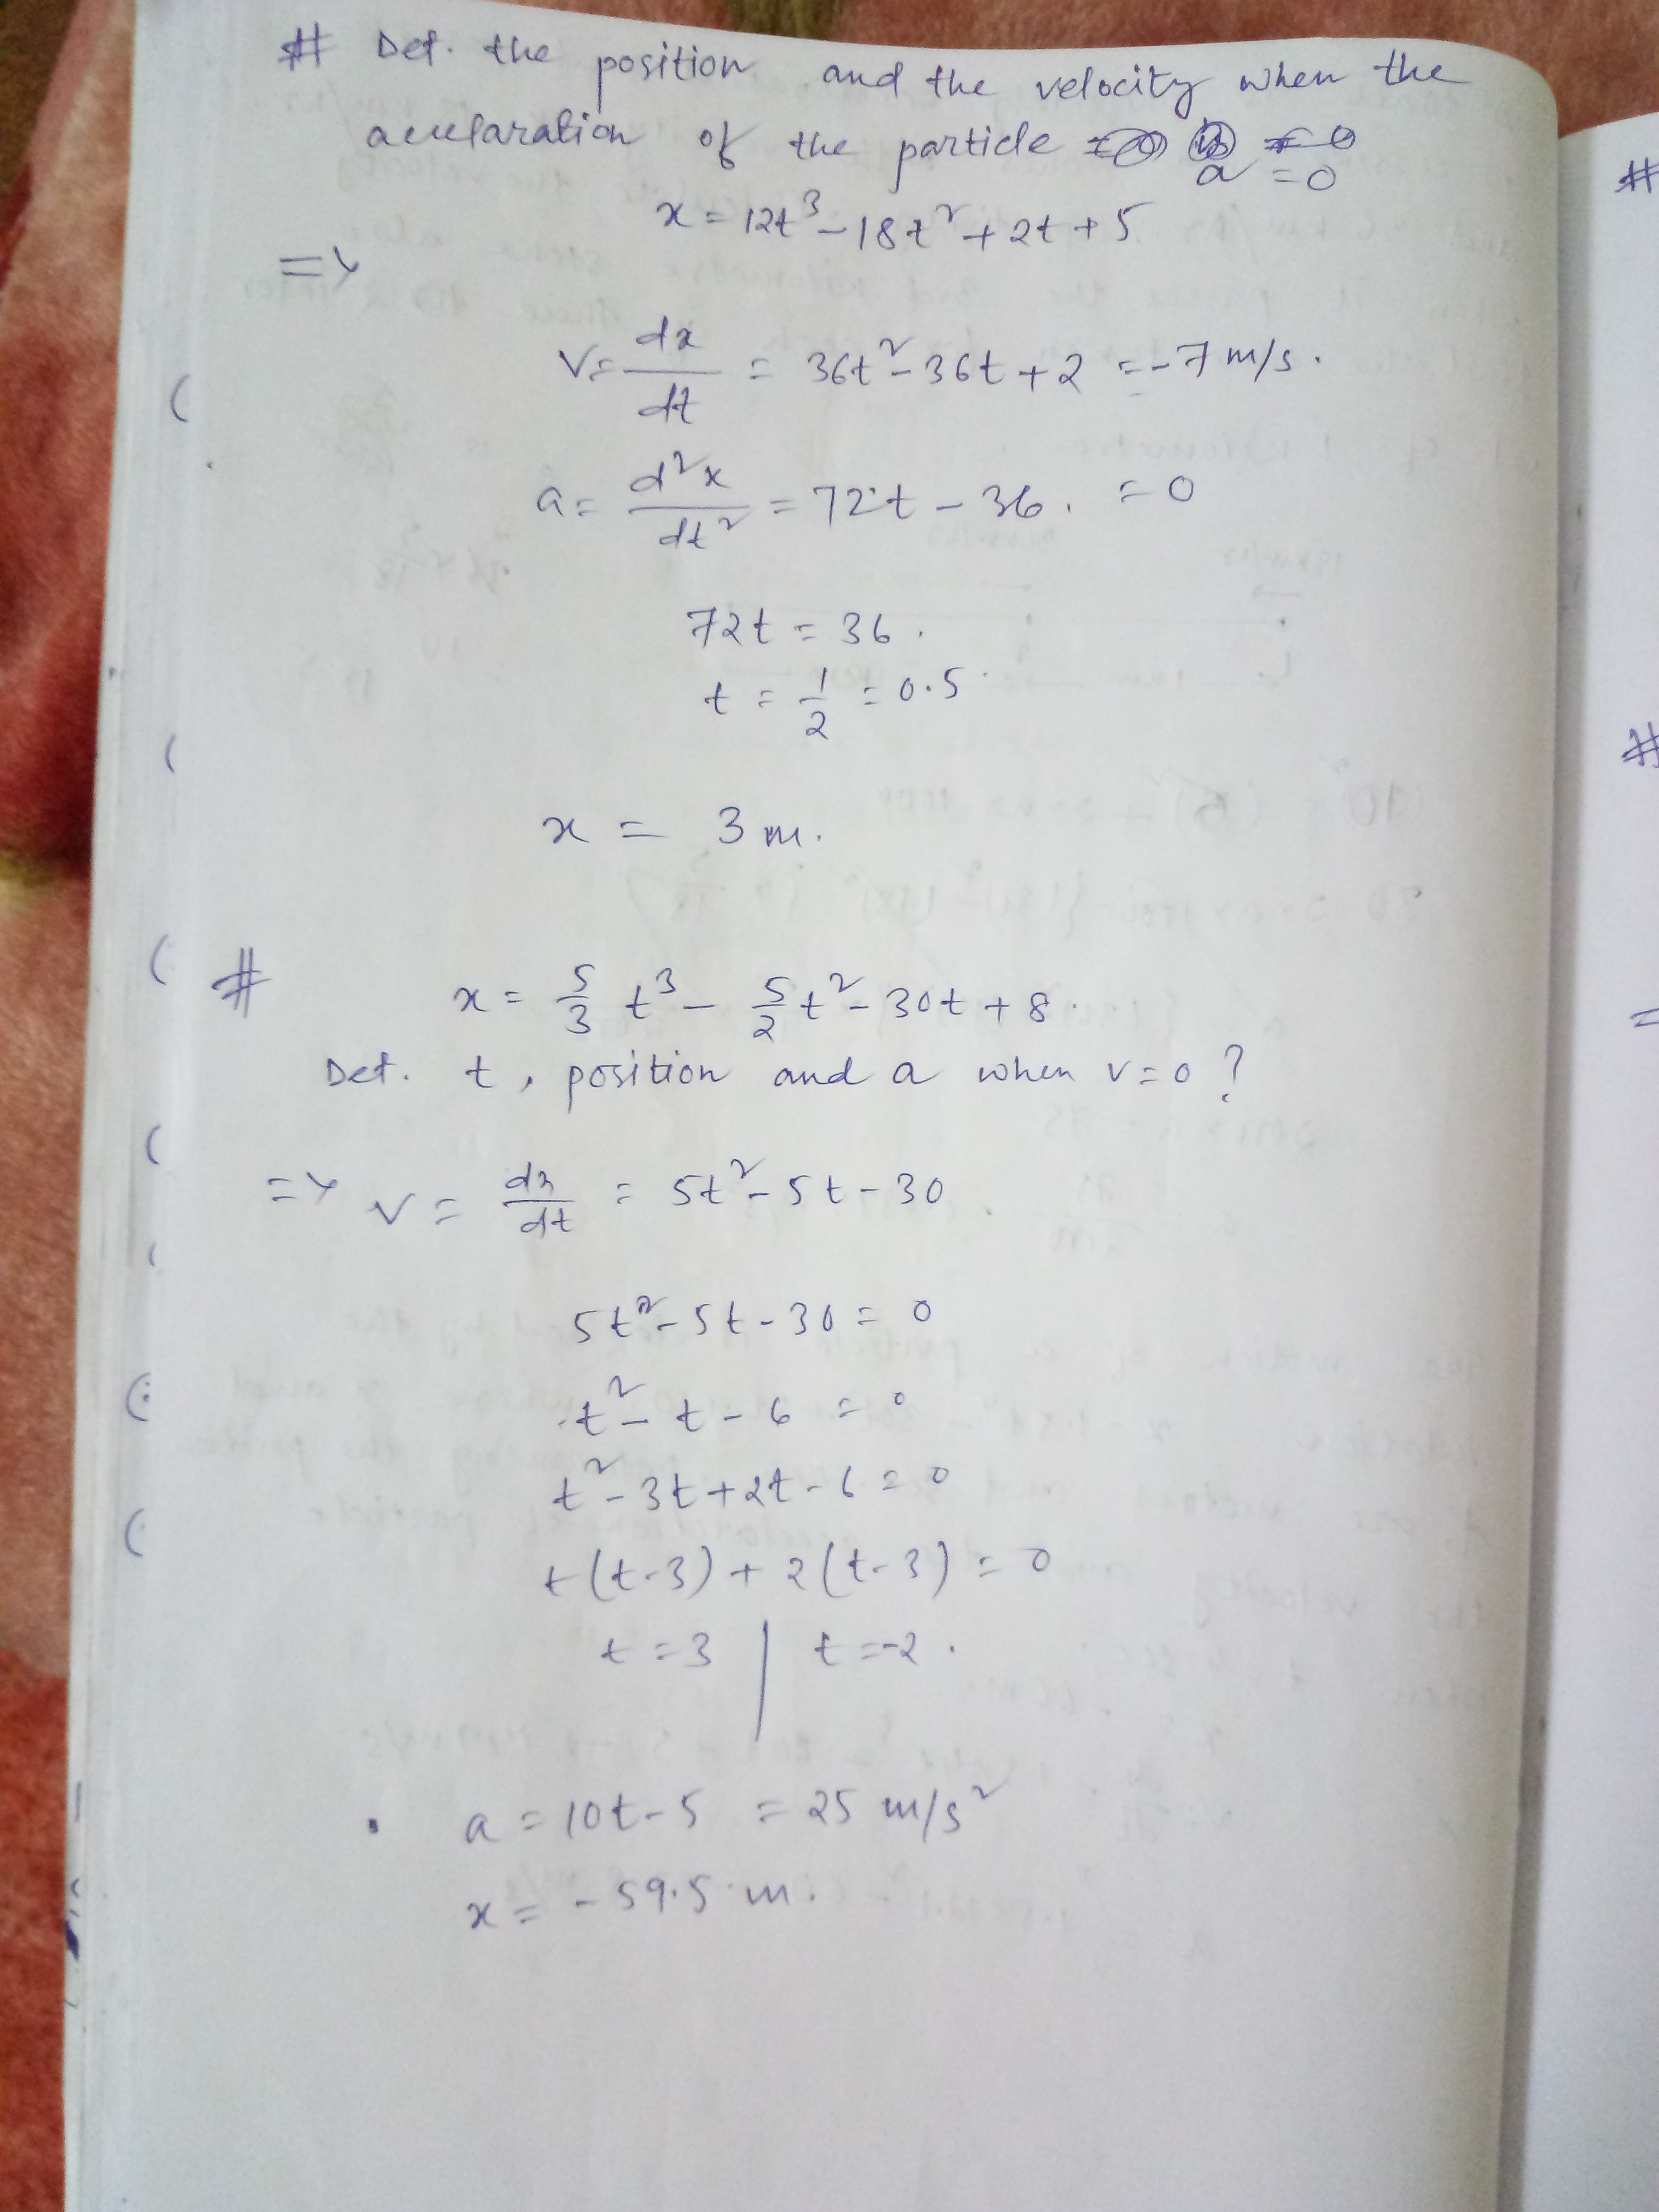 # Det. the position and the velocity when the
accelaration of the particle a = 0
x = 12t³ - 18t² + 2t + 5
=>
v = dx/dt = 36t² - 36t + 2 = -7 m/s.
a = d²x/dt² = 72t - 36. = 0
72t = 36.
t = 1/2 = 0.5
x = 3 m.
# x = 5/3 t³ - 5/2 t² - 30t + 8.
Det. t, position and a when v = 0 ?
=> v = dx/dt = 5t² - 5t - 30.
5t² - 5t - 30 = 0
t² - t - 6 = 0
t² - 3t + 2t - 6 = 0
t(t-3) + 2(t-3) = 0
t = 3 | t = -2.
a = 10t - 5 = 25 m/s²
x = - 59.5 m.
#
#
=